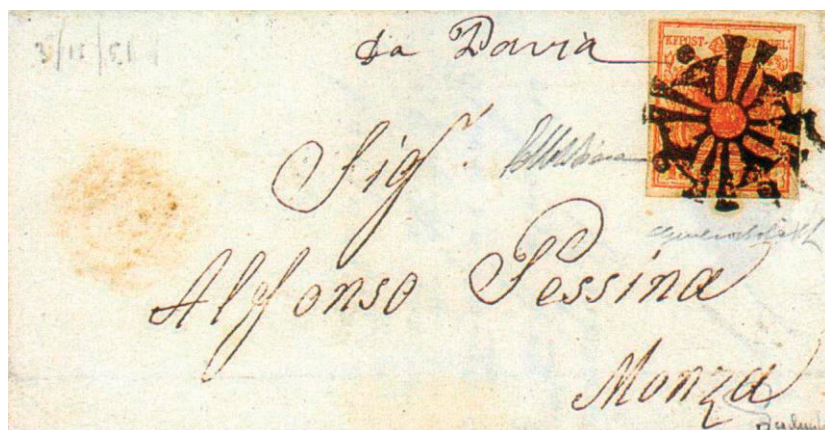 3/11/51
da Pavia
KKPOST-STEMPEL
Sig.r
Alfonso Pessina
Monza